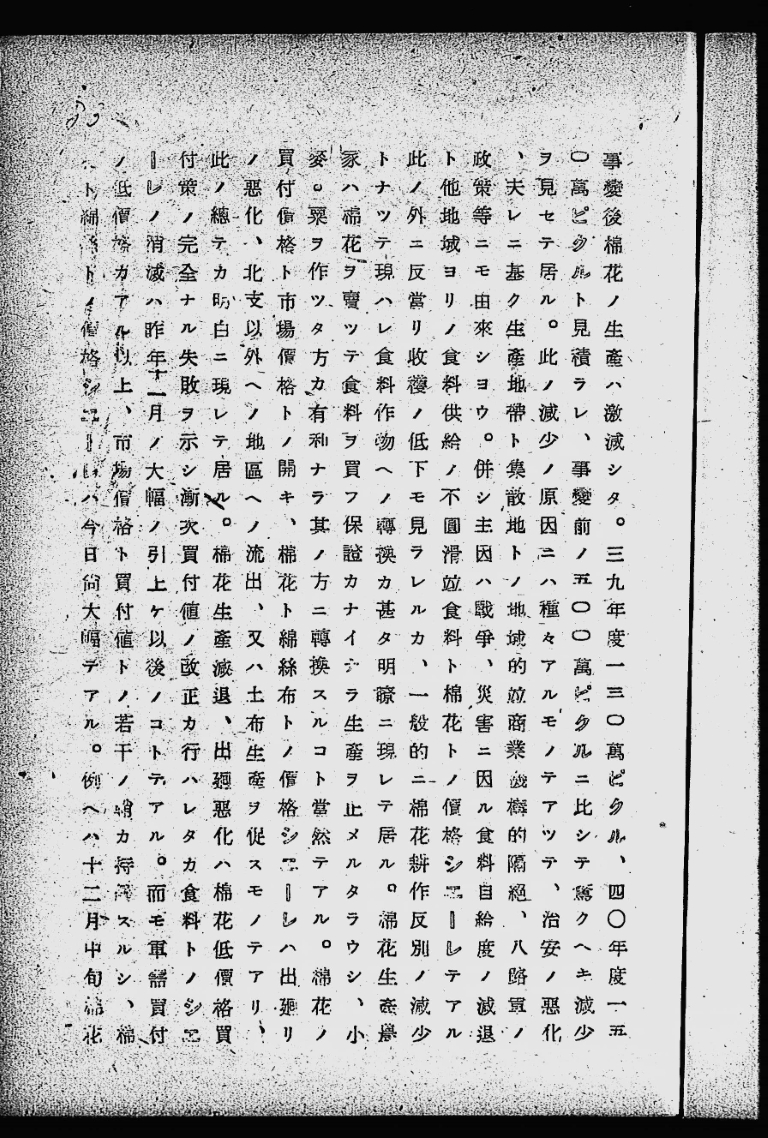 事變後棉花ノ生產ハ激減シタ。三九年度一三〇萬ピクル、四〇年度一五
〇萬ピクルト見積ラレ、事變前ノ五〇〇萬ピクルニ比シテ驚クヘキ減少
ヲ見セテ居ル。此ノ減少ノ原因ニハ種々アルモノテアツテ、治安ノ惡化
、夫レニ基ク生產地帶ト集散地トノ地域的竝商業機構的隔絕、八路軍ノ
政策等ニモ由來シヨウ。併シ主因ハ戰爭、災害ニ因ル食料自給度ノ減退
ト他地域ヨリノ食料供給ノ不圓滑竝食料ト棉花トノ價格シエーレテアル
此ノ外ニ反當リ收穫ノ低下モ見ラレルカ、一般的ニ棉花耕作反別ノ減少
トナツテ現ハレ食料作物ヘノ轉換カ甚タ明瞭ニ現レテ居ル。棉花生產農
家ハ棉花ヲ賣ツテ食料ヲ買フ保證カナイナラ生產ヲ止メルタラウシ、小
麥。粟ヲ作ツタ方カ有利ナラ其ノ方ニ轉換スルコト當然テアル。棉花ノ
買付價格ト市場價格トノ開キ、棉花ト綿絲布トノ價格シエーレハ出廻リ
ノ惡化、北支以外ヘノ地區ヘノ流出、又ハ土布生產ヲ促スモノテアリ、
此ノ總テカ明白ニ現レテ居ル。棉花生產減退、出廻惡化ハ棉花低價格買
付策ノ完全ナル失敗ヲ示シ漸次買付値ノ改正カ行ハレタカ食料トノシエ
ーレノ消滅ハ昨年十一月ノ大幅ノ引上ケ以後ノコトテアル。而モ軍需買付
ノ低價格カアル以上、市場價格ト買付値トノ若干ノ カ持續スルシ、棉
ト綿 トノ價格シエーレハ今日尙大幅テアル。例ヘハ十二月中旬棉花